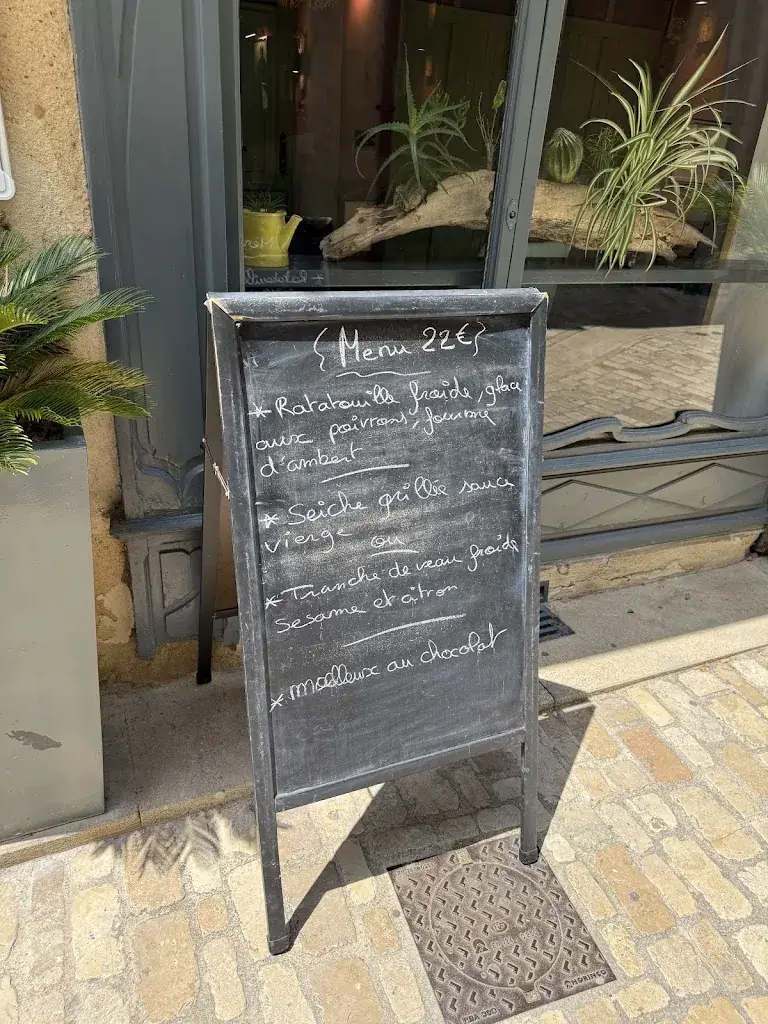 {Menu 22€}
* Ratatouille froide, glace
aux poivrons, fourme
d'ambert
* Seiche grillée sauce
vierge ou
* Tranche de veau froide
sesame et citron
* Moelleux au chocolat